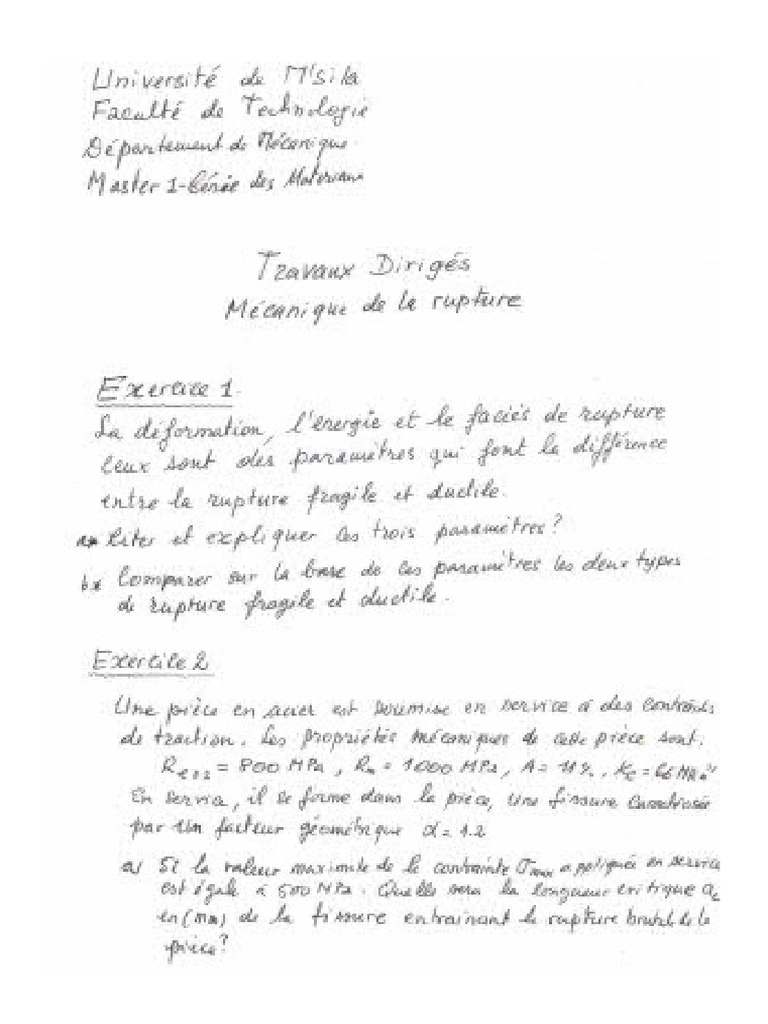 Université de M'sila
Faculté de Technologie
Département de Mécanique
Master 1-Génie des Materiaux
Travaux Dirigés
Mécanique de la rupture
Exercice 1.
La déformation, l'énergie et le faciés de rupture
ceux sont des paramètres qui font la différence
entre la rupture fragile et ductile.
a* Citer et expliquer ces trois paramètres?
b* Comparer sur la base de ces paramètres les deux types
de rupture fragile et ductile.
Exercice 2
Une pièce en acier est soumise en service à des contraintes
de traction. Les propriétés mécaniques de cette pièce sont.
Re0.2 = 800 MPa, Rm = 1000 MPa, A = 11%,
En service, il se forme dans la pièce, une fissure caractérisée
par un facteur géométrique α = 1.2
a) Si la valeur maximale de la contrainte σmax appliquée en service
est égale à 500 MPa. Quelle sera la longueur critique ac
en (mm) de la fissure entrainant la rupture brutal de la
pièce?